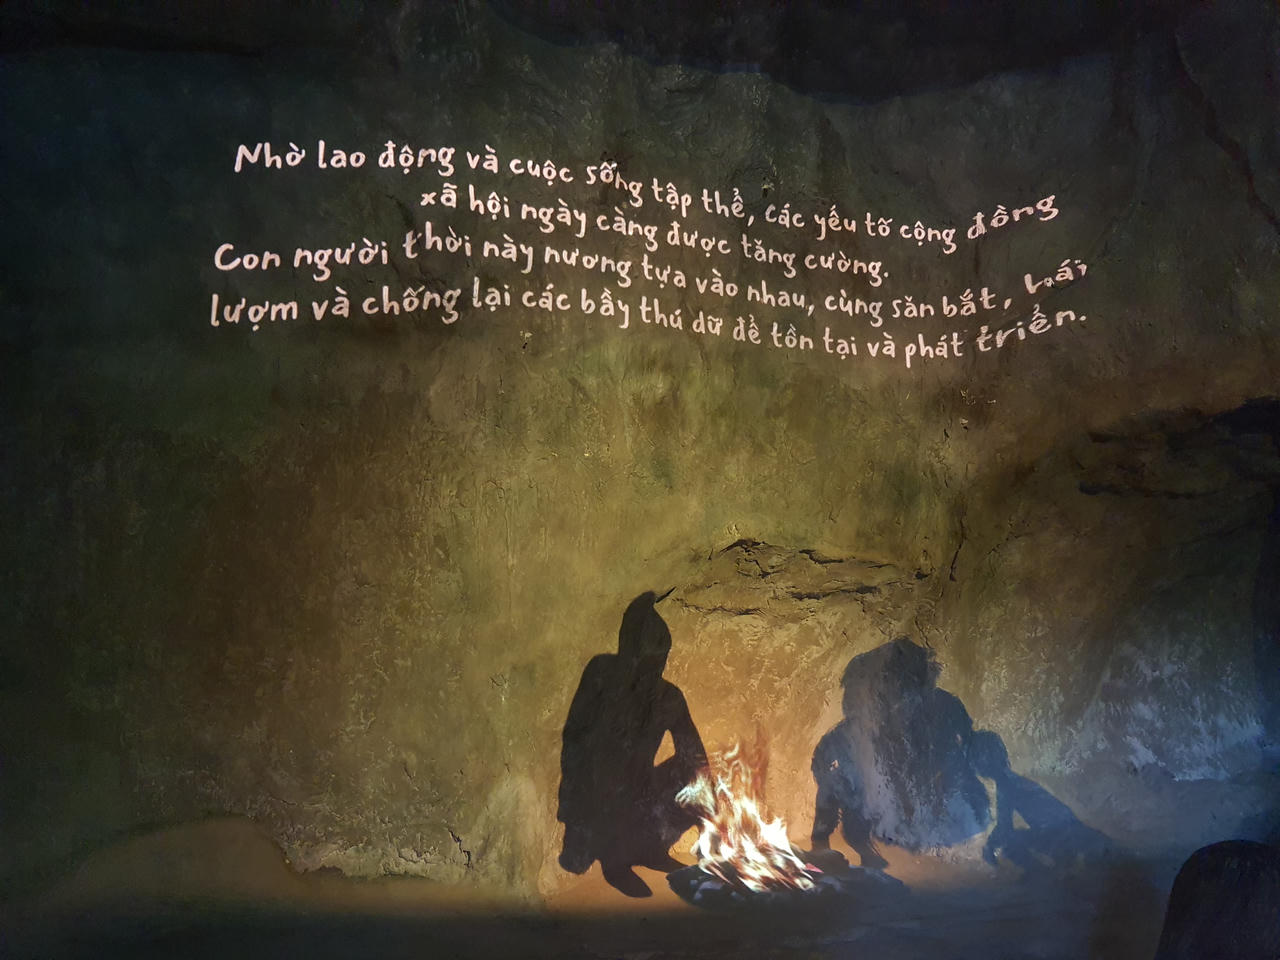 Nhờ lao động và cuộc sống tập thể, các yếu tố cộng đồng
xã hội ngày càng được tăng cường.
Con người thời này nương tựa vào nhau, cùng săn bắt, hái
lượm và chống lại các bầy thú dữ để tồn tại và phát triển.